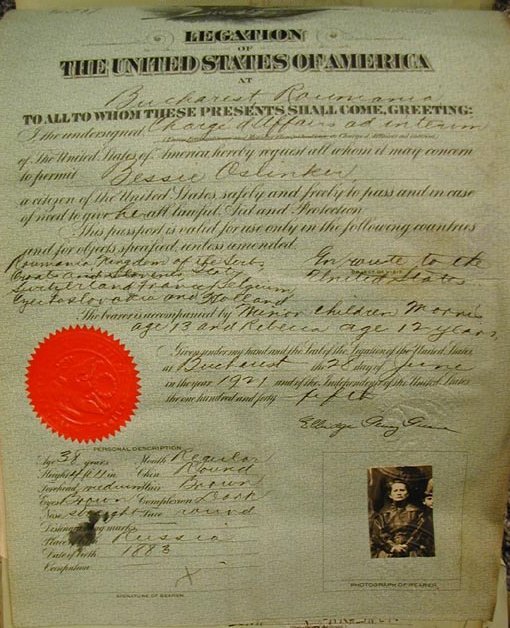 LEGATION
OF
THE UNITED STATES OF AMERICA
AT
Bucharest Roumania
TO ALL TO WHOM THESE PRESENTS SHALL COME, GREETING:
I the undersigned Charge d'Affaires ad interim
of The United States of America hereby request all whom it may concern
to permit Bessie Oslinker
a citizen of the United States safely and freely to pass and in case
of need to give her all lawful Aid and Protection.
This passport is valid for use only in the following countries
and for objects specified, unless amended.
Roumania Kingdom of the Serbs, En route to the
Croats and Slovenes, Italy, United States
Switzerland France, Belgium,
and Holland
The bearer is accompanied by Minor children Morris
age 13 and Rebecca age 12 years,
Given under my hand and the Seal of the Legation of the United States
at Bucharest the 28 day of June
in the year 1921 and of the Independence of the United States
the one hundred and forty fifth
PERSONAL DESCRIPTION
Age 38 years Mouth Regular
Height Chin Round
Forehead medium Hair Brown
Eyes Brown Complexion Dark
Nose straight Face round
Distinguishing marks
Place of birth Russia
Date of birth 1883
Occupation
X
SIGNATURE OF BEARER
PHOTOGRAPH OF BEARER